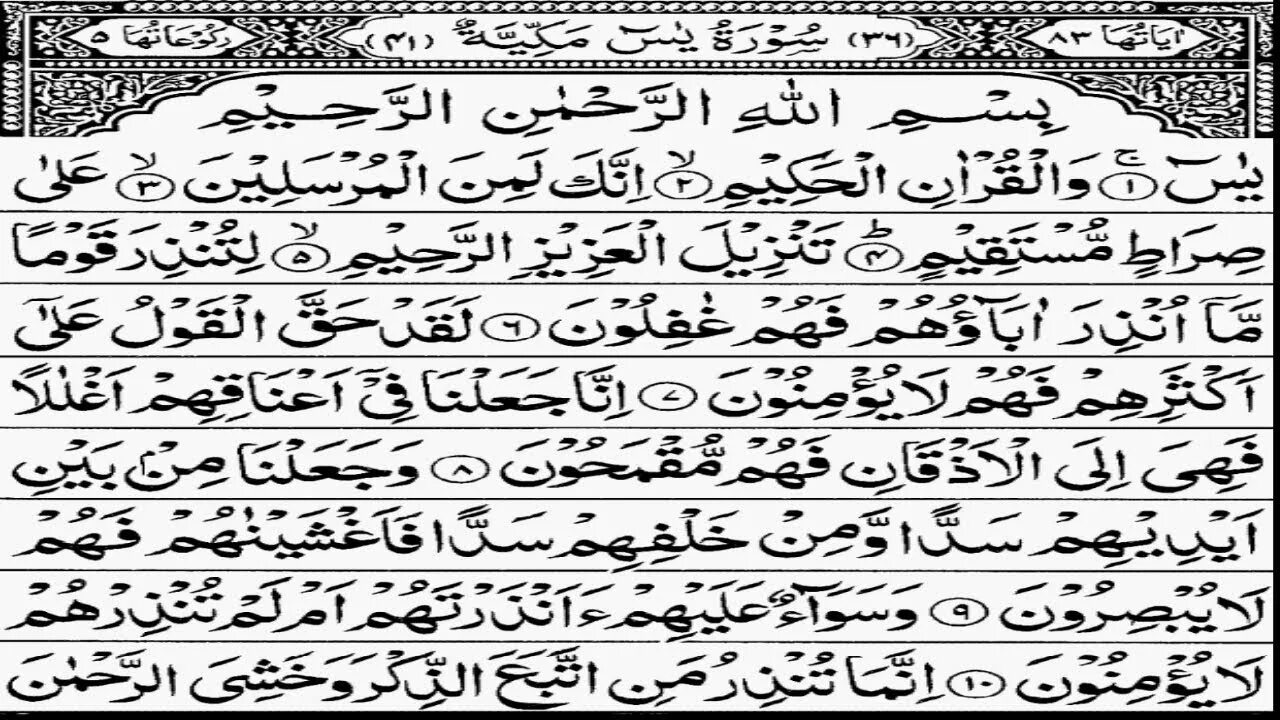 اٰيَاتُهَا ٨٣ (٣٦) سُوْرَةُ يٰسٓ مَكِّيَّةٌ (٤١) رُكُوْعَاتُهَا ٥
بِسْمِ اللّٰهِ الرَّحْمٰنِ الرَّحِيْمِ
يٰسٓ ۚ ﴿١﴾ وَالْقُرْاٰنِ الْحَكِيْمِ ۙ ﴿٢﴾ اِنَّكَ لَمِنَ الْمُرْسَلِيْنَ ۙ ﴿٣﴾ عَلٰى
صِرَاطٍ مُّسْتَقِيْمٍ ؕ ﴿٤﴾ تَنْزِيْلَ الْعَزِيْزِ الرَّحِيْمِ ۙ ﴿٥﴾ لِتُنْذِرَ قَوْمًا
مَّاۤ اُنْذِرَ اٰبَآؤُهُمْ فَهُمْ غٰفِلُوْنَ ﴿٦﴾ لَقَدْ حَقَّ الْقَوْلُ عَلٰٓى
اَكْثَرِهِمْ فَهُمْ لَا يُؤْمِنُوْنَ ﴿٧﴾ اِنَّا جَعَلْنَا فِيْۤ اَعْنَاقِهِمْ اَغْلٰلًا
فَهِيَ اِلَى الْاَذْقَانِ فَهُمْ مُّقْمَحُوْنَ ﴿٨﴾ وَجَعَلْنَا مِنْۢ بَيْنِ
اَيْدِيْهِمْ سَدًّا وَّمِنْ خَلْفِهِمْ سَدًّا فَاَغْشَيْنٰهُمْ فَهُمْ
لَا يُبْصِرُوْنَ ﴿٩﴾ وَسَوَآءٌ عَلَيْهِمْ ءَاَنْذَرْتَهُمْ اَمْ لَمْ تُنْذِرْهُمْ
لَا يُؤْمِنُوْنَ ﴿١٠﴾ اِنَّمَا تُنْذِرُ مَنِ اتَّبَعَ الذِّكْرَ وَخَشِيَ الرَّحْمٰنَ